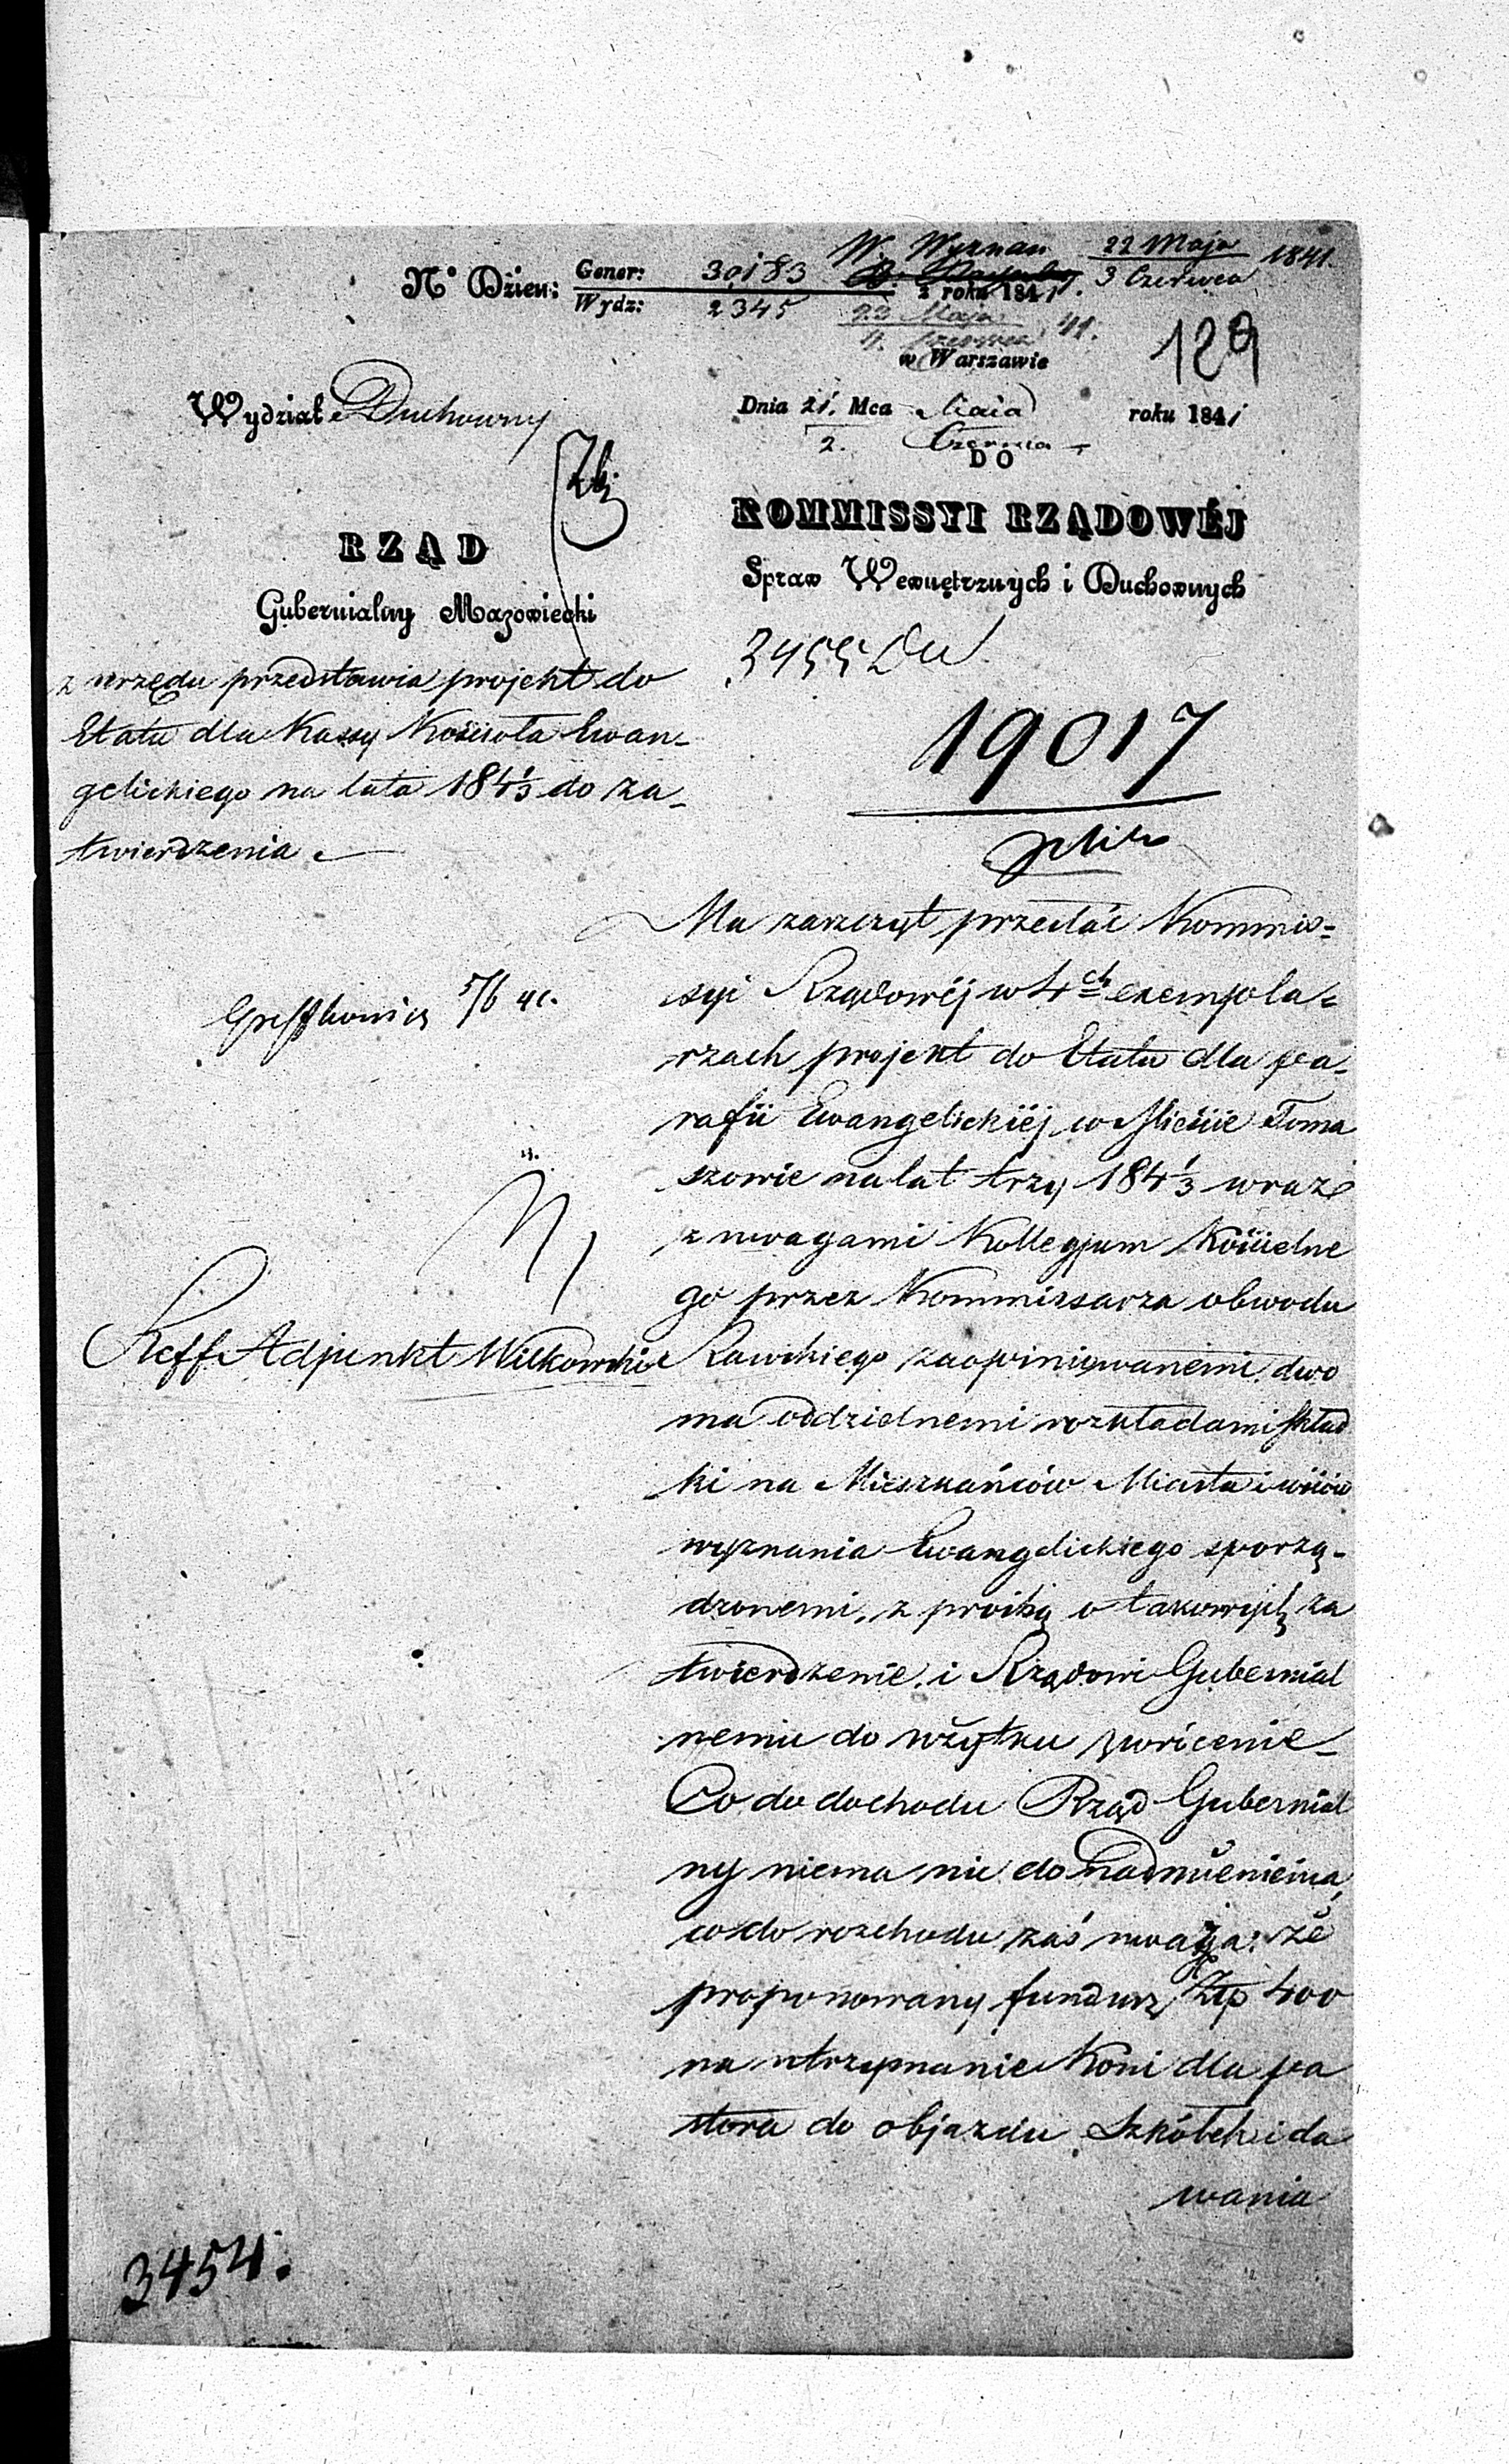 W. Wyznań 22 Maja 1841.
3 Czerwca
Nº Dzien: Gener: 30183
Wydz: 2345
z roku 1841.
22 Maja
41.
w Warszawie
129
Wydział Duchowny
Dnia 21. Mca Maia roku 1841
2. Czerwca
DO
KOMMISSYI RZĄDOWÉJ
Spraw Wewnętrznych i Duchownych
RZĄD
Gubernialny Mazowiecki
z urzędu przedstawia projekt do
Etatu dla Kassy Kościoła Ewan-
gelickiego na lata 184 1/3 do za-
twierdzenia.
3455
19017
5/6 41.
Reff Adjunkt Witkowski
Ma zaszczyt przesłać Kommis-
syi Rządowéj w 4ch exempla-
rzach projekt do Etatu dla pa-
rafii Ewangelickiéj w Mieście Toma
szowie na lat trzy 184 1/3 wraz
z uwagami Kollegjum Kościelne
go przez Kommissarza obwodu
Rawskiego zaopiniowanemi, dwo
ma oddzielnemi rozkładami skład
ki na Mieszkańców Miasta i wsiów
wyznania Ewangelickiego sporzą-
dzonemi, z prośbą o takowych za
twierdzenie i Rządowi Gubernial
nemu do użytku zwrócenie
Co do dochodu Rząd Gubernial
ny niema nic do nadmienienia,
co do rozchodu zaś uważa: że
proponowany fundusz Złp 400
na utrzymanie Koni dla pa
stora do objazdu Szkółek i da
wania
3454.